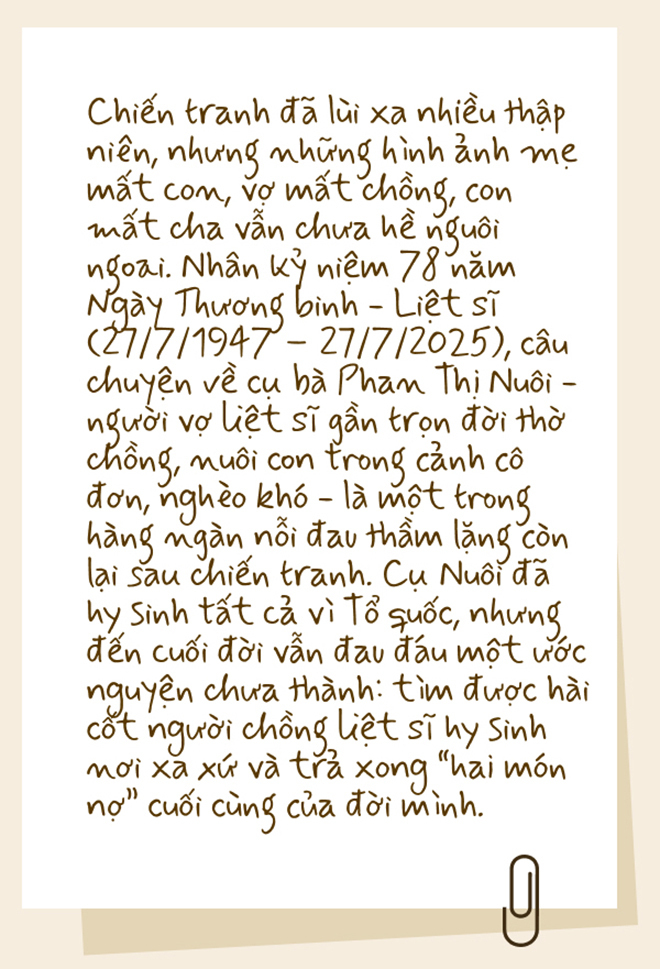 Chiến tranh đã lùi xa nhiều thập
niên, nhưng những hình ảnh mẹ
mất con, vợ mất chồng, con
mất cha vẫn chưa hề nguôi
ngoai. Nhân kỷ niệm 78 năm
Ngày Thương binh - Liệt sĩ
(27/7/1947 – 27/7/2025), câu
chuyện về cụ bà Phan Thị Nuôi -
người vợ liệt sĩ gần trọn đời thờ
chồng, nuôi con trong cảnh cô
đơn, nghèo khó - là một trong
hàng ngàn nỗi đau thầm lặng còn
lại sau chiến tranh. Cụ Nuôi đã
hy sinh tất cả vì Tổ quốc, nhưng
đến cuối đời vẫn đau đáu một ước
nguyện chưa thành: tìm được hài
cốt người chồng liệt sĩ hy sinh
nơi xa xứ và trả xong “hai món
nợ” cuối cùng của đời mình.